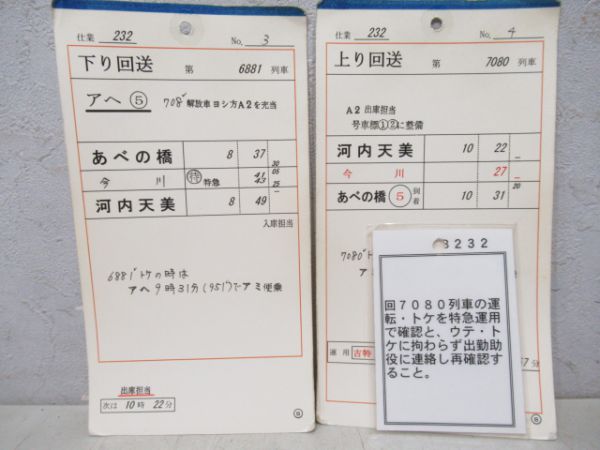 仕業 232 No. 3
下り回送 第 6881 列車
アヘ ⑤ 708ﾚ 解放車ヨシ方A2を充当
あべの橋 8 37 30
今川 ㊕特急 41 05
43 25
河内天美 8 49 —
入庫担当
6881ﾚ トケの時は
アヘ 9時31分(951ﾚ)でアミ便乗
出庫担当
次は 10時 22分
仕業 232 No. 4
上り回送 第 7080 列車
A2 出庫担当
号車標①②に整備
河内天美 10 22 —
今川 27 —
あべの橋 ⑤ 到着 10 31 20
7080ﾚ ト
ア
運用 吉特
37分
3232
回7080列車の運
転・トケを特急運用
で確認と、ウテ・ト
ケに拘わらず出勤助
役に連絡し再確認す
ること。